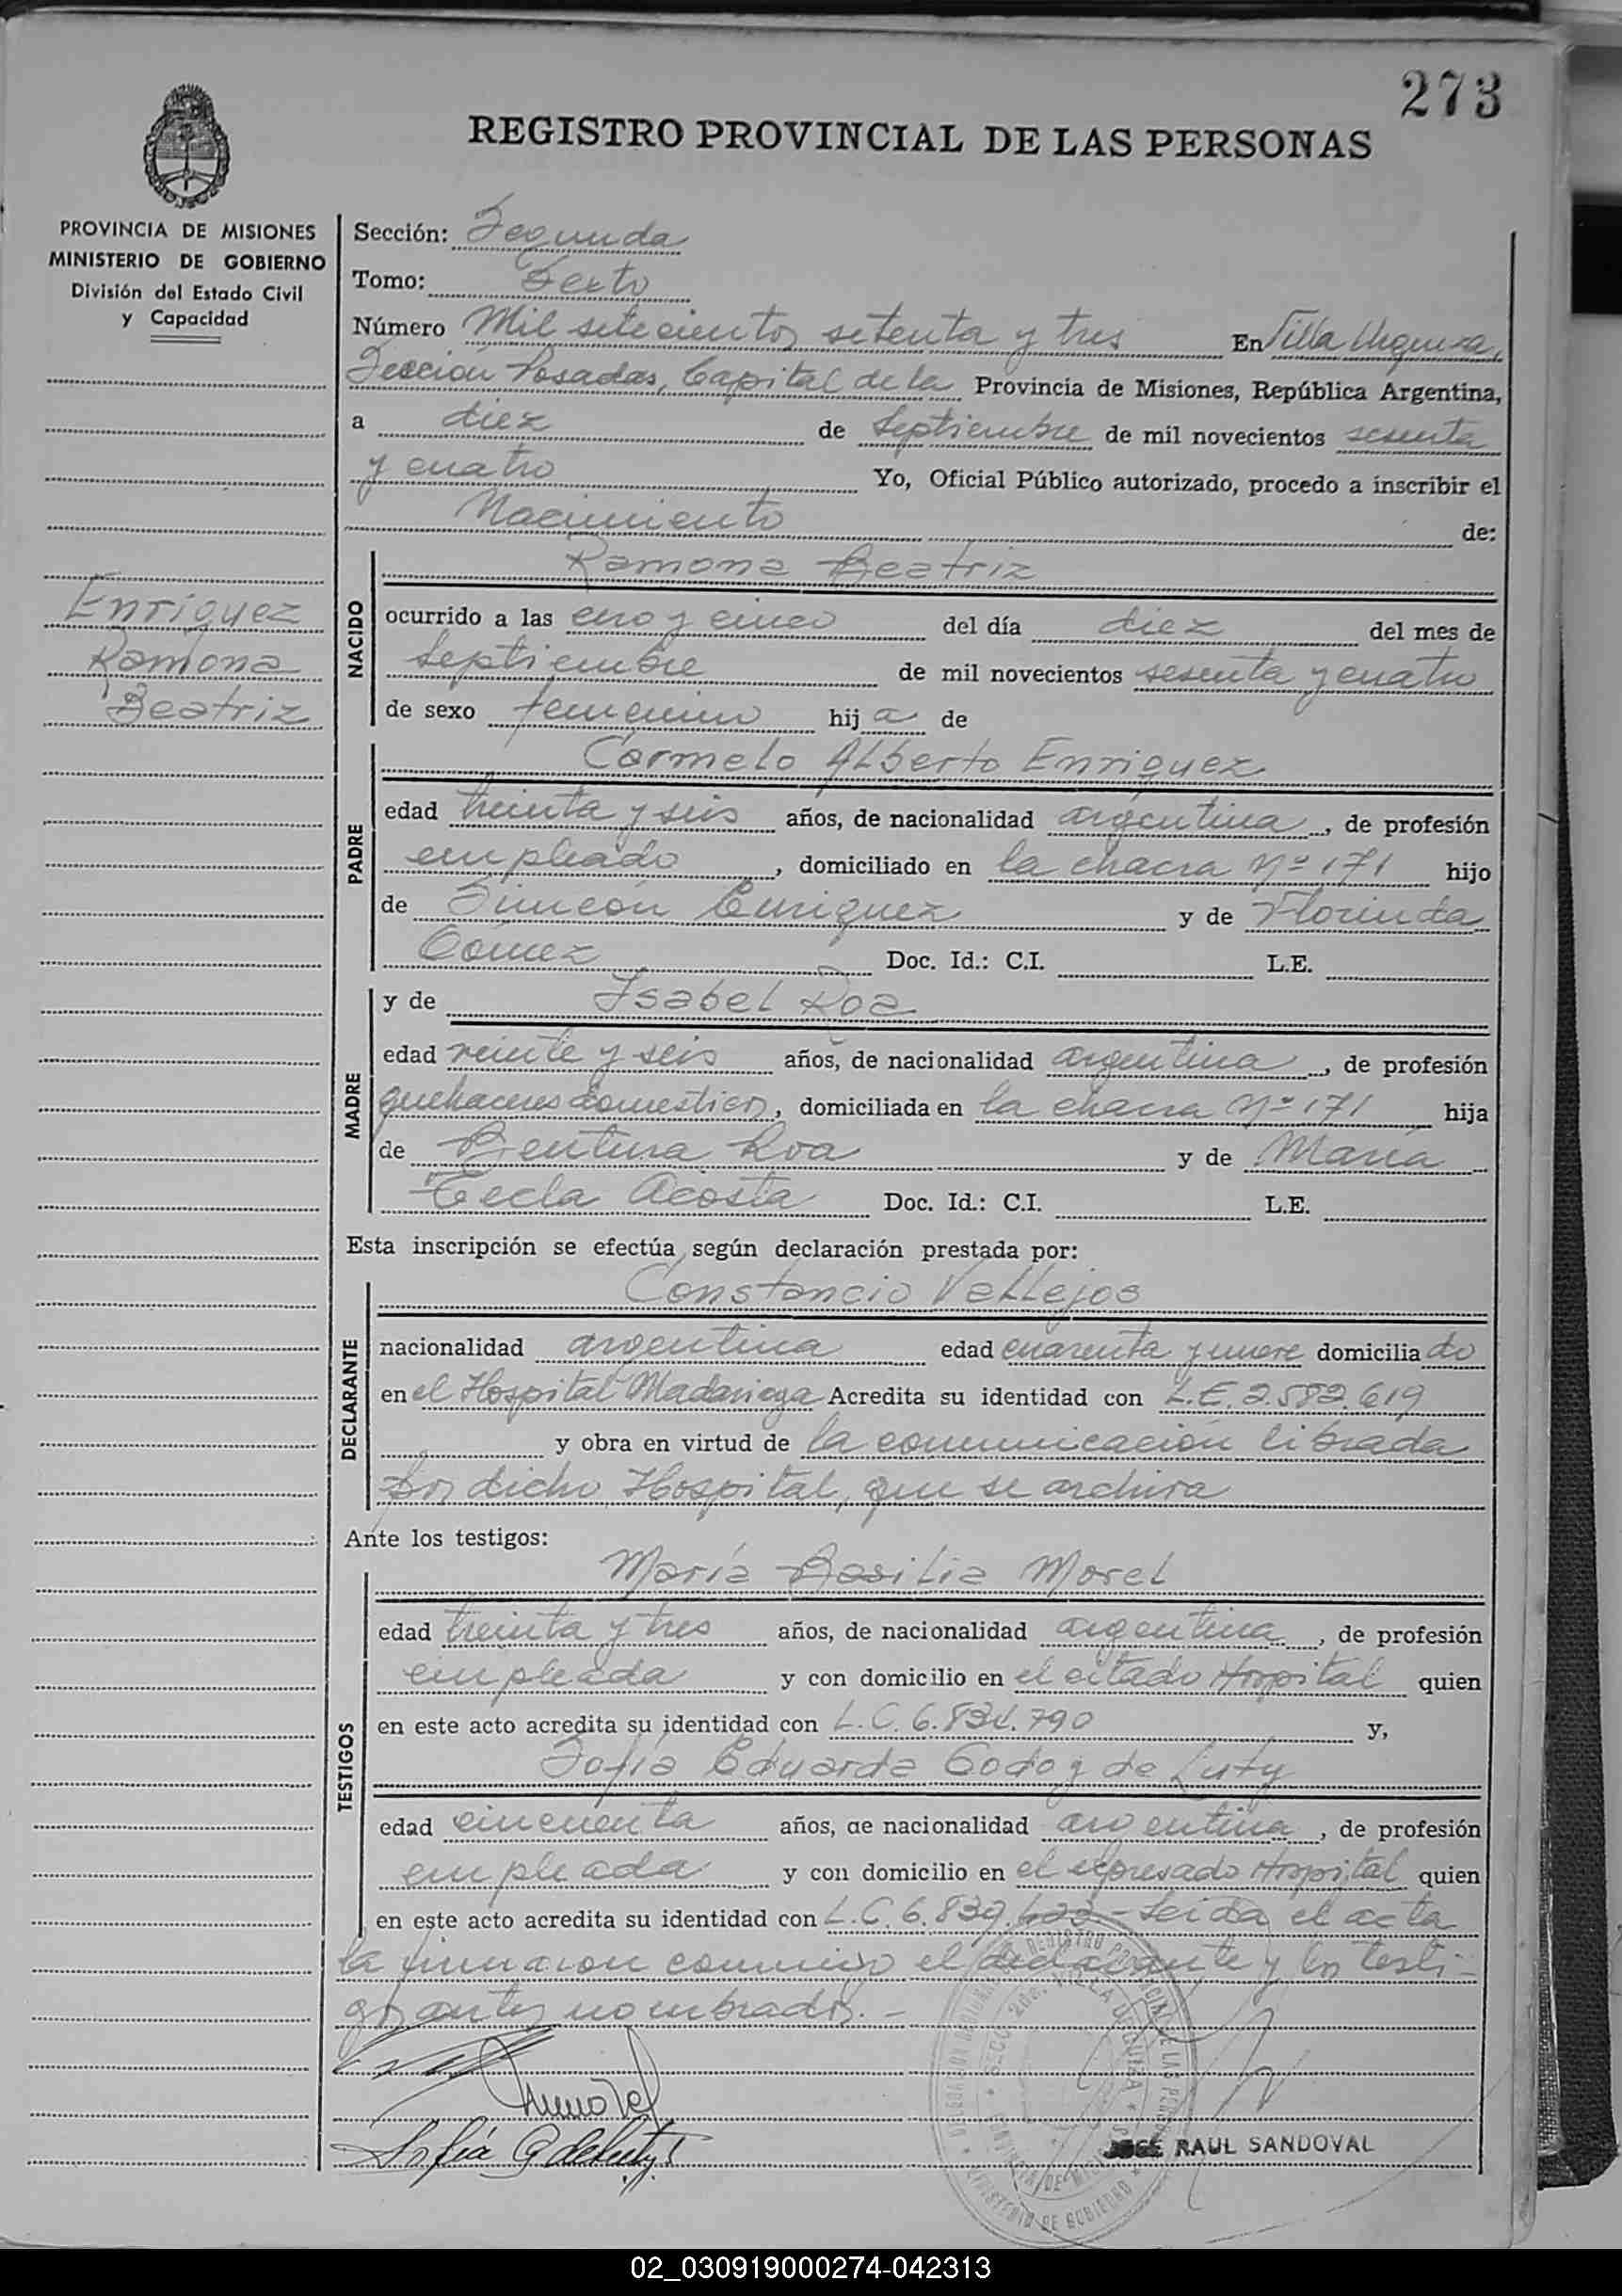 273
REGISTRO PROVINCIAL DE LAS PERSONAS
PROVINCIA DE MISIONES
MINISTERIO DE GOBIERNO
División del Estado Civil
y Capacidad
Enriquez
Ramona
Beatriz
Sección: Segunda
Tomo: Sexto
Número Mil setecientos setenta y tres En Villa Urquiza,
Sección Posadas, Capital de la Provincia de Misiones, República Argentina,
a diez de Septiembre de mil novecientos sesenta
y cuatro Yo, Oficial Público autorizado, procedo a inscribir el
Nacimiento de:
NACIDO
Ramona Beatriz
ocurrido a las cero y cinco del día diez del mes de
Septiembre de mil novecientos sesenta y cuatro
de sexo femenino hija de
PADRE
Carmelo Alberto Enriquez
edad treinta y seis años, de nacionalidad argentina, de profesión
empleado, domiciliado en la chacra Nº 171 hijo
de Simeón Enriquez y de Florinda
Gómez Doc. Id.: C.I. L.E.
MADRE
y de Isabel Roa
edad veinte y seis años, de nacionalidad argentina, de profesión
quehaceres domesticos, domiciliada en la chacra Nº 171 hija
de Bentura Roa y de María
Tecla Acosta Doc. Id.: C.I. L.E.
Esta inscripción se efectúa según declaración prestada por:
DECLARANTE
Constancio Vallejos
nacionalidad argentina edad cuarenta y nueve domiciliado
en el Hospital Madariaga Acredita su identidad con L.E. 2.582.619
y obra en virtud de la comunicación librada
por dicho Hospital, que se archiva
Ante los testigos:
TESTIGOS
María Basilia Morel
edad treinta y tres años, de nacionalidad argentina, de profesión
empleada y con domicilio en el citado Hospital quien
en este acto acredita su identidad con L.C. y,
Sofía Eduarda Godoy de Luty
edad cincuenta años, de nacionalidad argentina, de profesión
empleada y con domicilio en el expresado Hospital quien
en este acto acredita su identidad con L.C. Leida el acta
la firmaron conmigo el declarante y los testi-
gos antes nombrados.-
Sofía G de Luty
JOSE RAUL SANDOVAL
02_030919000274-042313